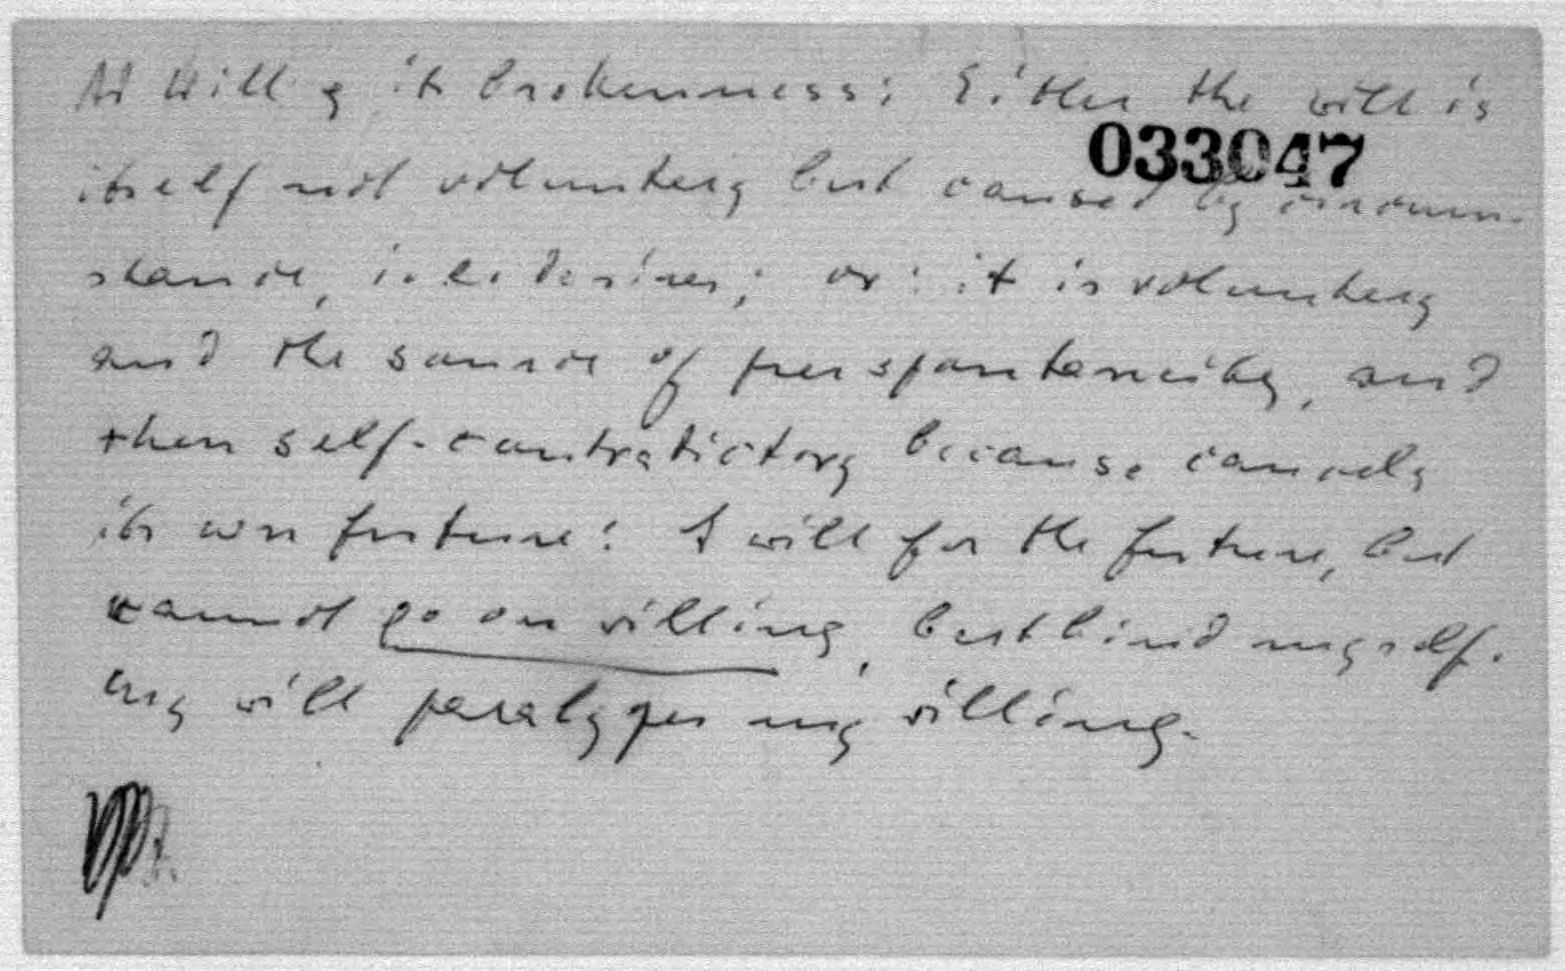 Ad Will & its brokenness: Either the will is
033047
itself not voluntary but caused by circum-
stance, i.e. desires; or: it is voluntary
and the source of free spontaneity, and
then self-contradictory because cancels
its own future: I will for the future, but
cannot go on willing, but bind myself.
my will paralyzes my willing.